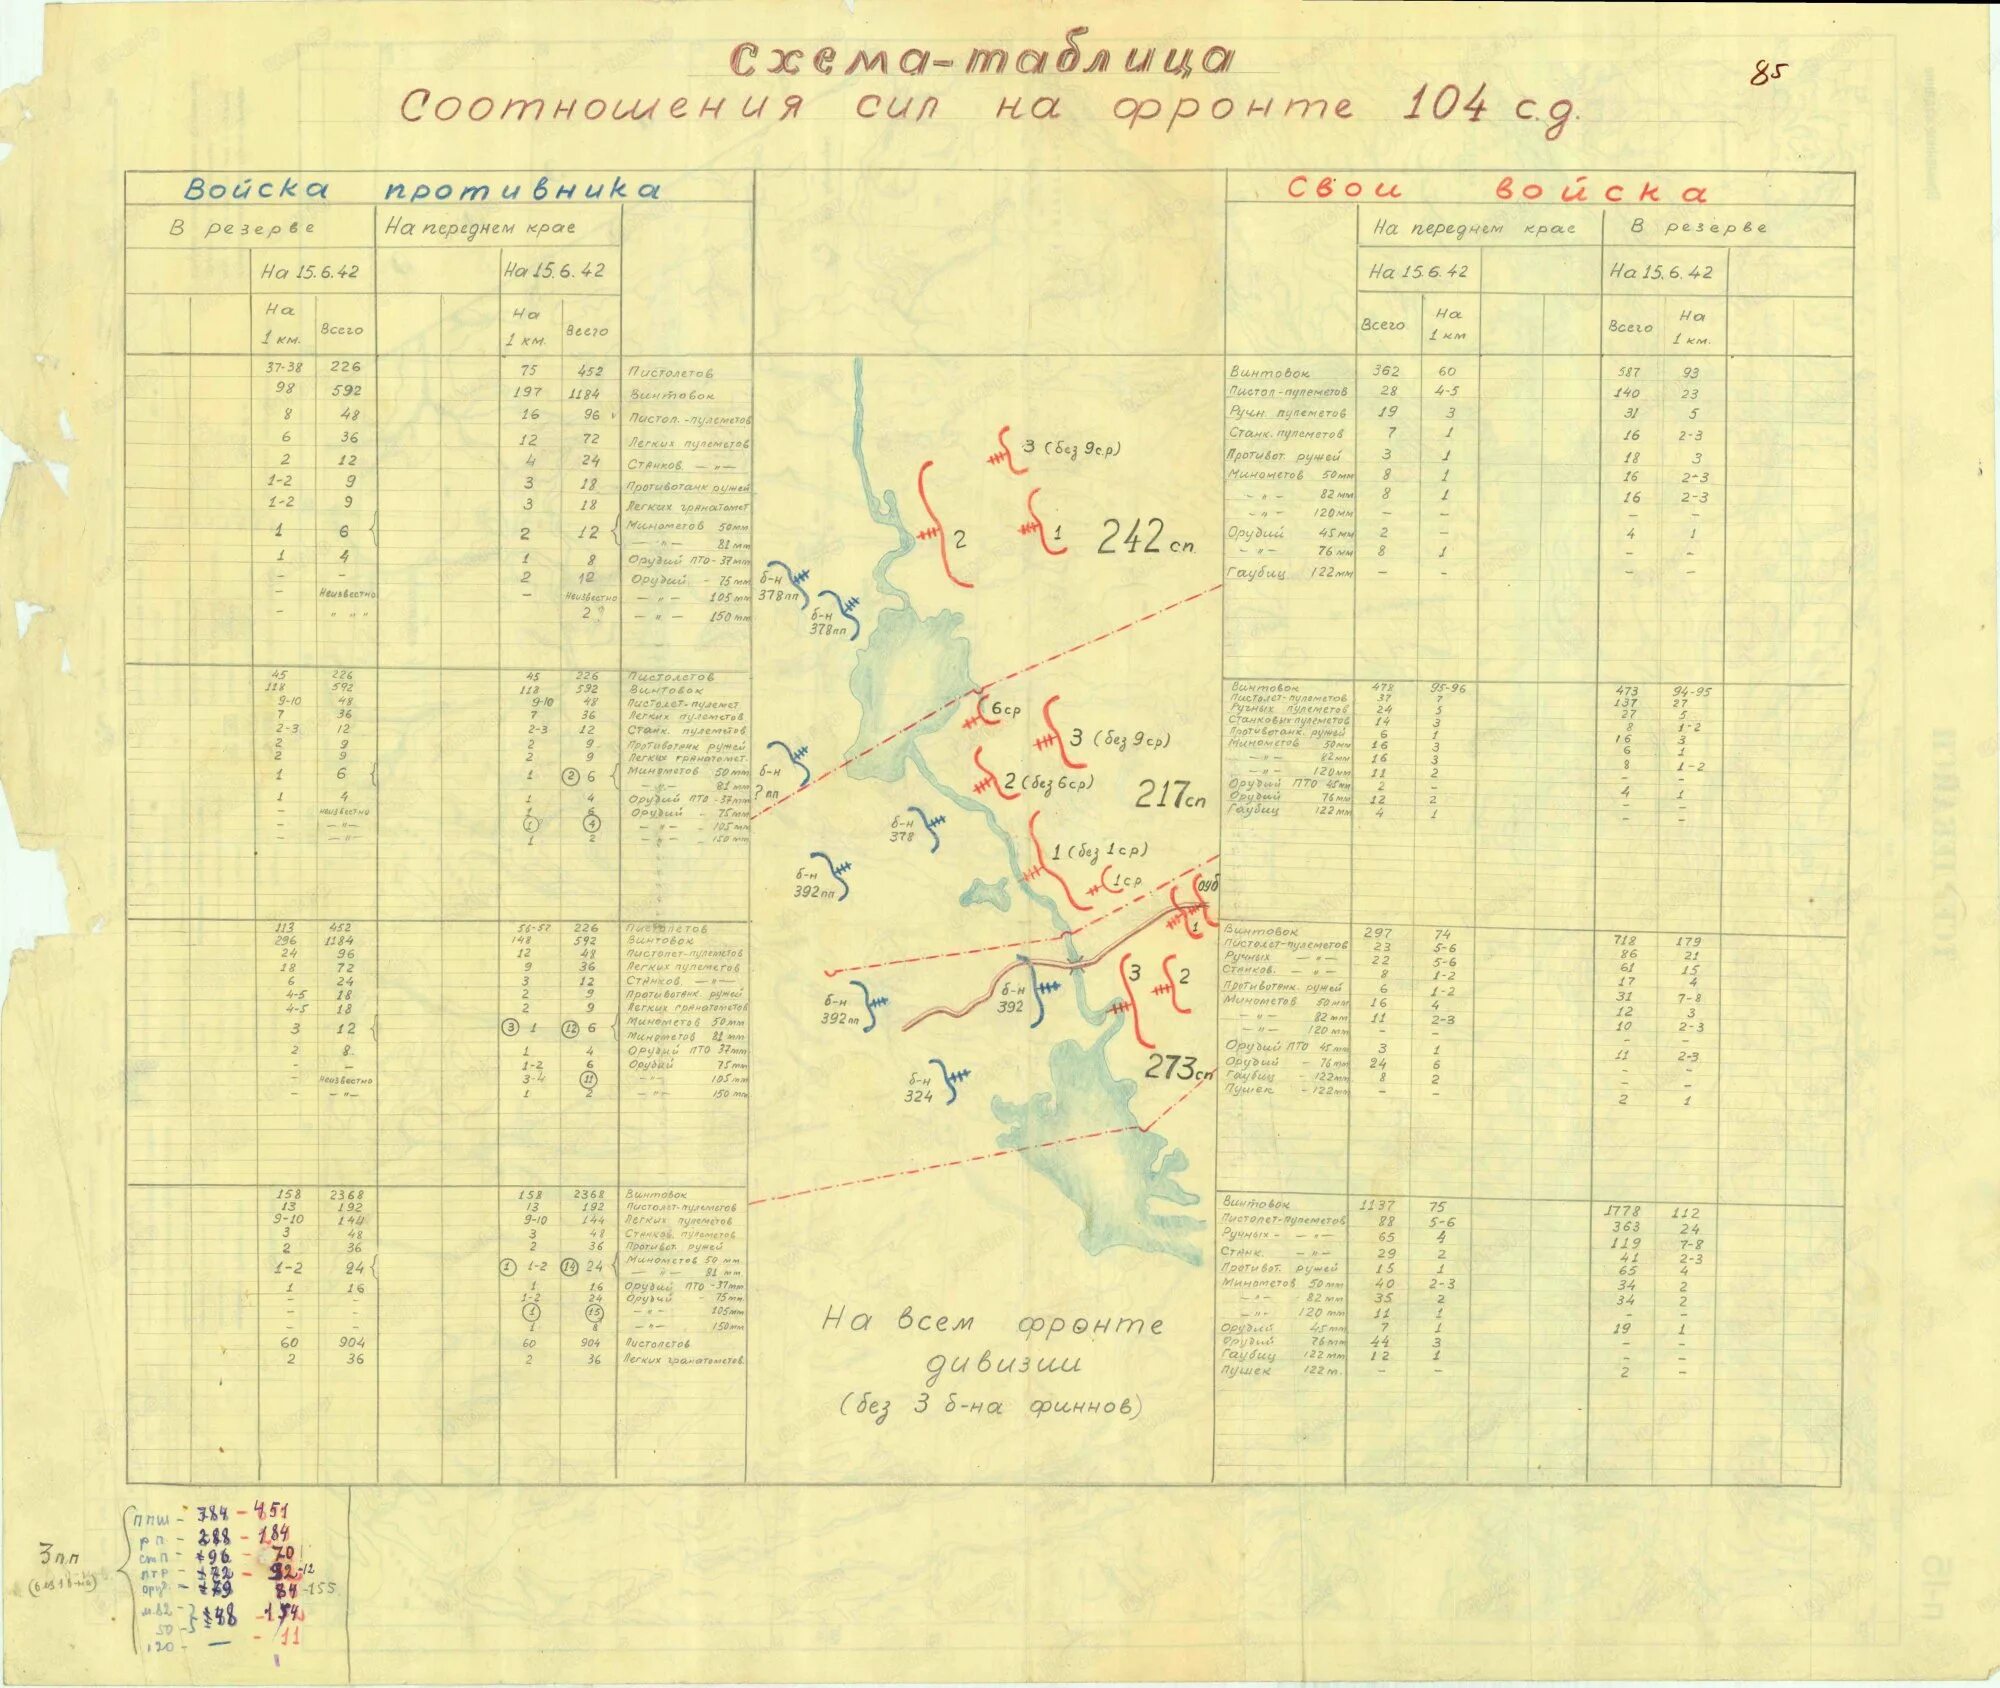 85
Схема-таблица
Соотношения сил на фронте 104 с.д.
Войска противника
В резерве На переднем крае
На 15.6.42 На 15.6.42
На 1 км. Всего На 1 км. Всего
37-38 226 75 452 Пистолетов
98 592 197 1184 Винтовок
8 48 16 96 Пистол.-пулеметов
6 36 12 72 Легких пулеметов
2 12 4 24 Станков. —"—
1-2 9 3 18 Противотанк ружей
1-2 9 3 18 Легких гранатомет
1 6 2 12 Минометов 50мм
—"— 81мм
1 4 1 8 Орудий ПТО-37мм
- - 2 12 Орудий - 75мм
- Неизвестно - Неизвестно —"— 105мм
- " " " 2? —"— 150мм
45 226 45 226 Пистолетов
118 592 118 592 Винтовок
9-10 48 9-10 48 Пистолет-пулемет
7 36 7 36 Легких пулеметов
2-3 12 2-3 12 Станк. пулеметов
2 9 2 9 Противотанк ружей
2 9 2 9 Легких гранатомет.
1 6 1 2 6 Минометов 50мм
—"— 81мм
1 4 1 4 Орудий ПТО-37мм
- неизвестно 1 6 Орудий - 75мм
- —"— 1? 4 —"— 105мм
- —"— 1 2 —"— 150мм
113 452 56-57 226 Пистолетов
296 1184 148 592 Винтовок
24 96 12 48 Пистолет-пулеметов
18 72 9 36 Легких пулеметов
6 24 3 12 Станков. —"—
4-5 18 2 9 Противотанк. ружей
4-5 18 2 9 Легких гранатометов
3 12 3 1 12 6 Минометов 50мм
Минометов 81мм
2 8 1 4 Орудий ПТО 37мм
- - 1-2 6 Орудий 75мм
- Неизвестно 3-4 11 —"— 105мм
- —"— 1 2 —"— 150мм
158 2368 158 2368 Винтовок
13 192 13 192 Пистолет-пулеметов
9-10 144 9-10 144 Легких пулеметов
3 48 3 48 Станков. пулеметов
2 36 2 36 Противот. ружей
1-2 24 1 1-2 14 24 Минометов 50мм
—"— 81мм
1 16 1 16 Орудий ПТО-37мм
- - 1-2 24 Орудий - 75мм.
- - 1 15 —"— 105мм
- - 1 8 —"— 150мм
60 904 60 904 Пистолетов
2 36 2 36 Легких гранатометов.
3 (без 9ср)
2
1
242 сп
б-н
378пп
б-н
378пп
6ср
3 (без 9ср)
2 (без 6ср)
217сп
б-н
? пп
б-н
378
1 (без 1ср)
1ср
б-н
392пп
оуб
1
3
2
б-н
392
б-н
392пп
273сп
б-н
324
На всем фронте
дивизии
(без 3 б-на финнов)
Свои войска
На переднем крае В резерве
На 15.6.42 На 15.6.42
Всего На 1 км Всего На 1 км.
Винтовок 362 60 587 93
Пистол-пулеметов 28 4-5 140 23
Ручн. пулеметов 19 3 31 5
Станк. пулеметов 7 1 16 2-3
Противот. ружей 3 1 18 3
Минометов 50мм 8 1 16 2-3
—"— 82мм 8 1 16 2-3
—"— 120мм - - - -
Орудий 45мм 2 - 4 1
—"— 76мм 8 1 - -
Гаубиц 122мм - - - -
Винтовок 478 95-96 473 94-95
Пистолет-пулеметов 37 7 137 27
Ручных пулеметов 24 5 27 5
Станковых пулеметов 14 3 8 1-2
Противотанк. ружей 6 1 16 3
Минометов 50мм 16 3 6 1
—"— 82мм 16 3 8 1-2
—"— 120мм 11 2 - -
Орудий ПТО 45мм 2 - 4 1
Орудий 76мм 12 2 - -
Гаубиц 122мм 4 1 - -
Винтовок 297 74 718 179
Пистолет-пулеметов 23 5-6 86 21
Ручных —"— 22 5-6 61 15
Станков. —"— 8 1-2 17 4
Противотанк. ружей 6 1-2 31 7-8
Минометов 50мм 16 4 12 3
—"— 82мм 11 2-3 10 2-3
—"— 120мм - - - -
Орудий ПТО 45мм 3 1 11 2-3
Орудий - 76мм 24 6 - -
Гаубиц - 122мм 8 2 - -
Пушек - 122мм - - 2 1
Винтовок 1137 75 1778 112
Пистолет-пулеметов 88 5-6 363 24
Ручных - —"— 65 4 119 7-8
Станк. —"— 29 2 41 2-3
Противот. ружей 15 1 65 4
Минометов 50мм 40 2-3 34 2
—"— 82мм 35 2 34 2
—"— 120мм 11 1 - -
Орудий 45мм 7 1 19 1
Орудий 76мм 44 3 - -
Гаубиц 122мм 12 1 - -
Пушек 122м. - - 2 -
3 п.п
(без 1 б-на)
ППШ - 384 - 451
РП - 288 - 184
стп - 96 - 70
ПТР - 72 - 92-12
оруд. - 79 84-155
м.82 - 148 - 154
50 -
120 - — - 11